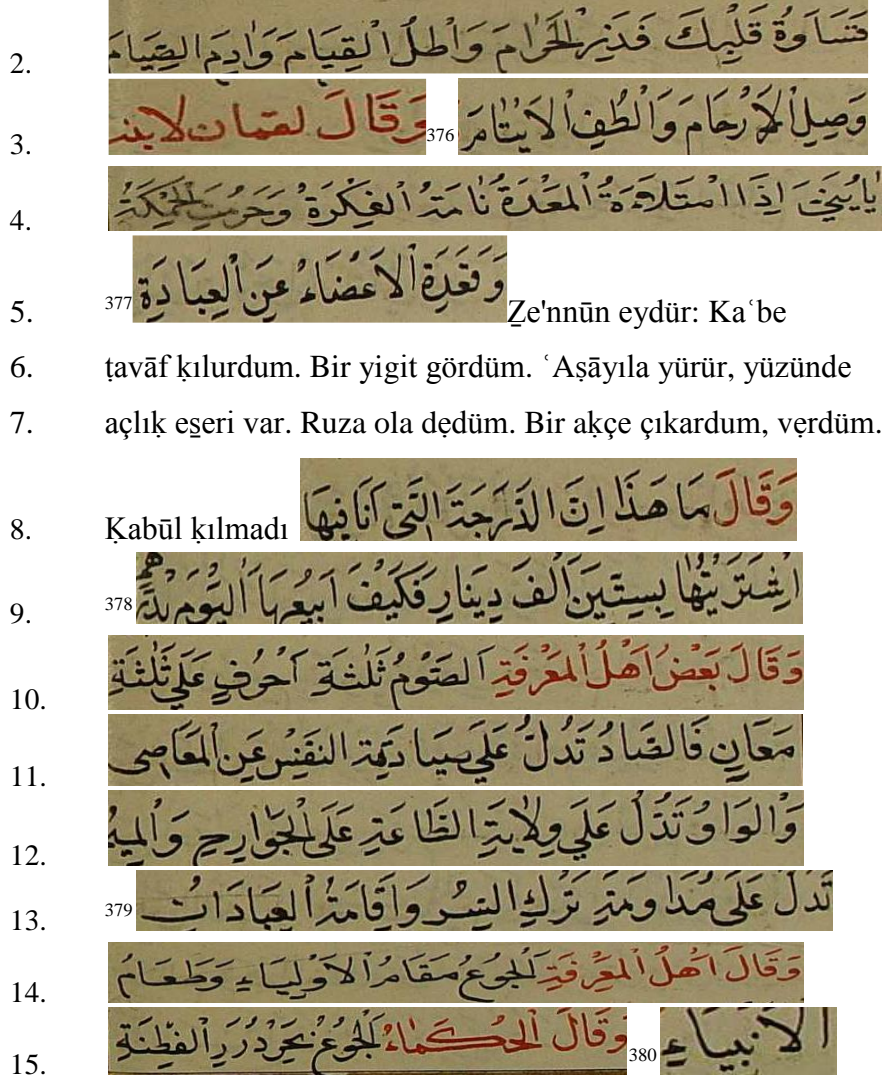 2. قَسَاوَةُ قَلْبِكَ فَذَرِ الْحَرَامَ وَاَطِلُ الْقِيَامَ وَاَدِمِ الصِّيَامَ
3. وَصِلِ الْاَرْحَامَ وَالْطُفِ الْاَيْتَامَ 376 وَقَالَ لقمان لابنه
4. يَا بُنَيَّ اِذَا امْتَلَاءَةُ الْمَعْدَةُ نَامَتُ الْفِكْرَةُ وَخَرِبَتِ الْحِكْمَةُ
5. وَقَعَدَةِ الْاَعْضَاءُ عَنِ الْعِبَادَةِ 377 Ẕe'nnūn eydür: Kaʿbe
6. ṭavāf ḳılurdum. Bir yigit gördüm. ʿAṣāyıla yürür, yüzünde
7. açlıḳ es̱eri var. Ruza ola dẹdüm. Bir aḳçe çıkardum, vẹrdüm.
8. Ḳabūl ḳılmadı وَقَالَ مَا هَذَا اِنَّ الدَّرَجَةَ الَّتِى اَنَا فِيهَا
9. اِشْتَرَيْتُهَا بِسِتِّينَ اَلْفَ دِينَارٍ فَكَيْفَ اَبِيعُهَا الْيَوْمَ بِدِرْهَمٍ 378
10. وَقَالَ بَعْضُ اَهْلُ الْمَعْرِفَةِ اَلصَّوْمُ ثَلٰثَةِ اَحْرُفٍ عَلَي ثَلٰثَةِ
11. مَعَانٍ فَالصَّادُ تَدُلُّ عَلَي صِيَانَةِ النَّفْسِ عَنِ الْمَعَاصِى
12. وَالْوَاوُ تَدُلُّ عَلَي وِلَايَةِ الطَّاعَةِ عَلَي الْجَوَارِحِ وَالْمِيمُ
13. تَدُلُّ عَلَى مُدَاوَمَةِ تَرْكِ السِّرِّ وَاِقَامَةُ الْعِبَادَاتِ 379
14. وَقَالَ اَهْلُ الْمَعْرِفَةِ اَلْجُوعُ مَقَامُ الْاَوْلِيَاءِ وَطَعَامُ
15. الْاَنْبِيَاءِ 380 وَقَالَ الْحُكَمَاءُ اَلْجُوعُ بَحْرُ دُرَرِ الْفِطْنَةِ